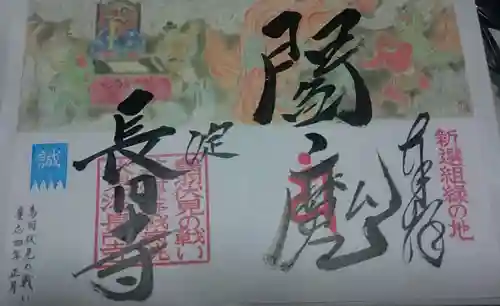 新選組縁の地
奉拝
閻魔
淀
長円寺
鳥羽伏見の戦い
誠
鳥羽伏見の戦い
慶応四年 正月